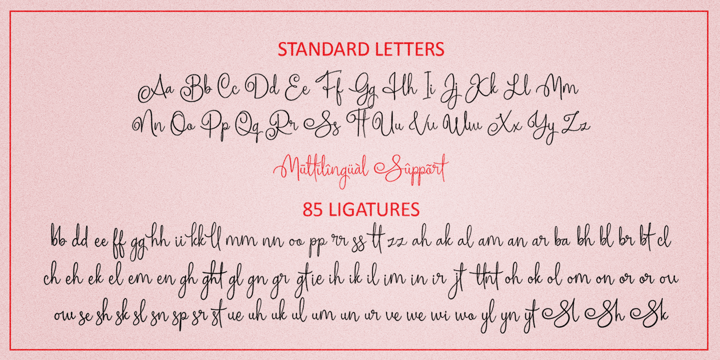 STANDARD LETTERS
Aa Bb Cc Dd Ee Ff Gg Hh Ii Jj Kk Ll Mm
Nn Oo Pp Qq Rr Ss Tt Uu Vv Ww Xx Yy Zz
Mültilîngüàl Sûppãrt
85 LIGATURES
bb dd ee ff gg hh ii kk ll mm nn oo pp rr ss tt zz ah ak al am an ar ba bh bl br bt cl
ch eh ek el em en gh ght gl gn gr gt ie ih ik il im in ir jt ttnt oh ok ol om on or or ou
ow se sh sk sl sn sp sr st ue uh uk ul um un ur ve we wi wo yl yn yt Sl Sh Sk